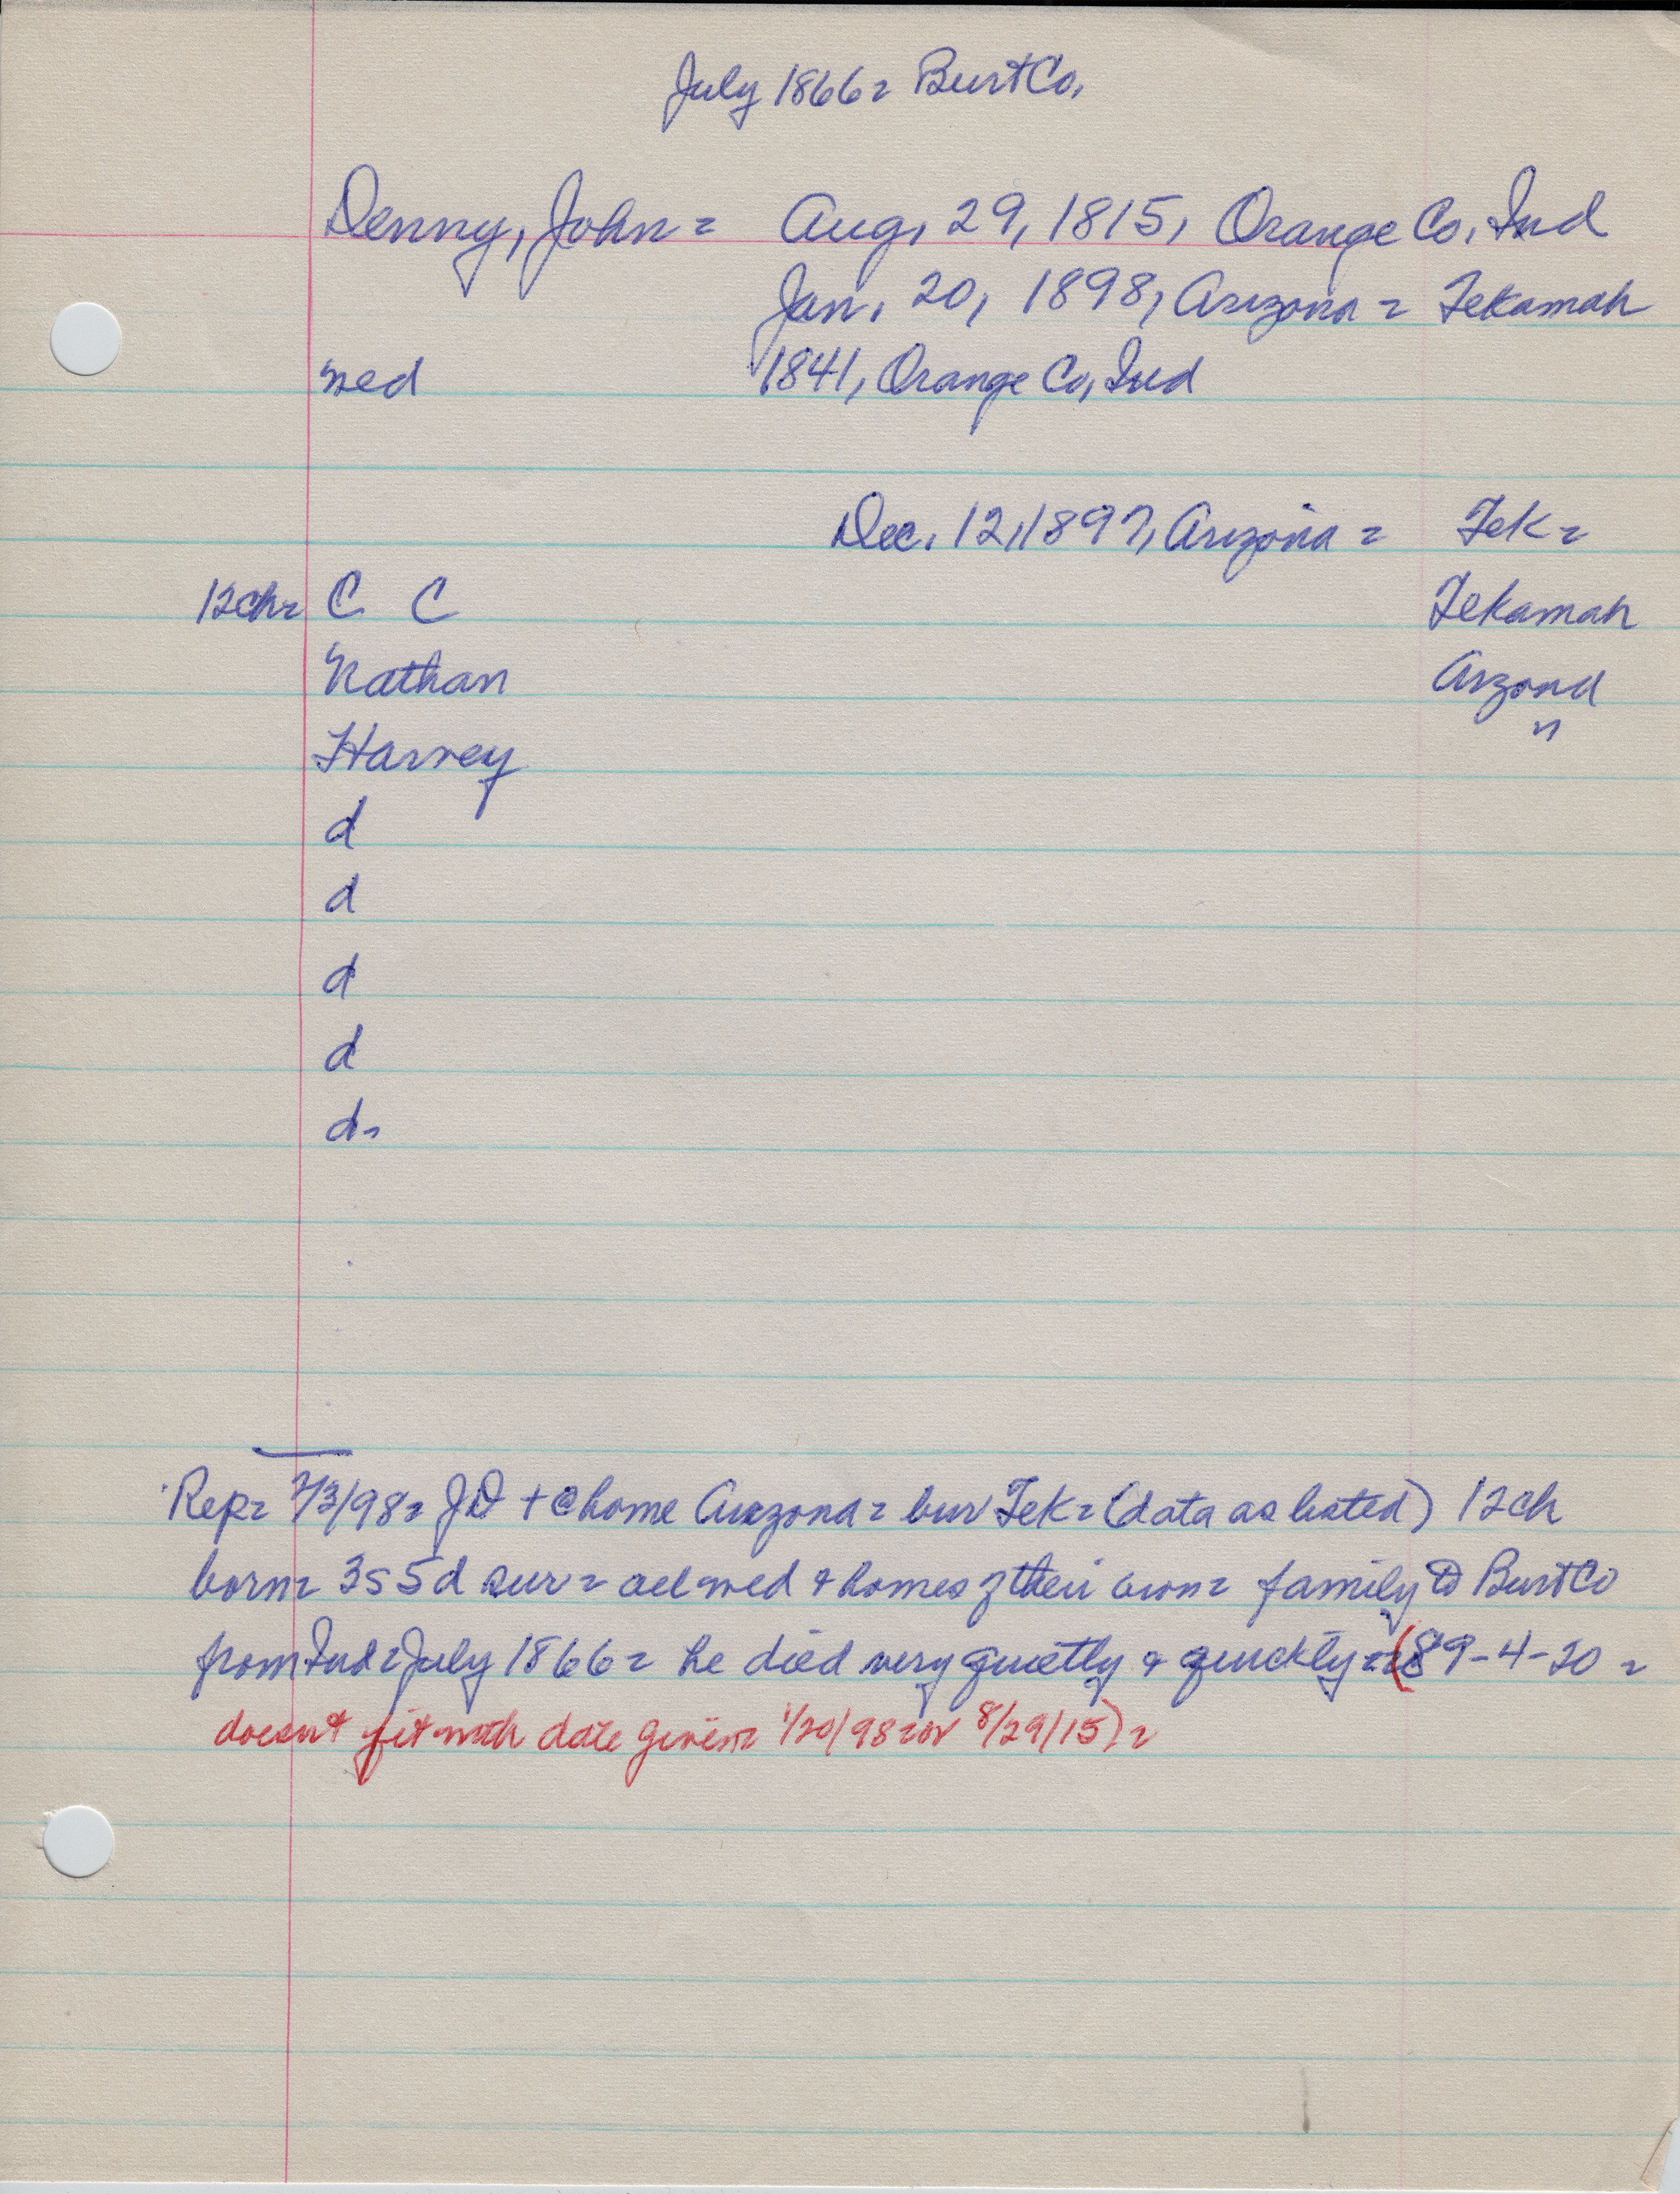 July 1866= Burt Co,
Denny, John= Aug, 29, 1815, Orange Co, Ind
Jan, 20, 1898, Arizona = Tekamah
wed 1841, Orange Co, Ind
Dec. 12, 1897, Arizona = Tek=
12ch= C C Tekamah
Nathan Arzona
Harvey "
d
d
d
d
d=
Rep= 2/3/98= JD + @ home Arizona= bur Tek= (data as listed) 12ch
born= 3s 5d sur= all wed & homes of their own= family to Burt Co
from Ind= July 1866= he died very quietly & quickly= (89-4-20=
doesnt fit with date given= 1/20/98= or 8/29/15)=